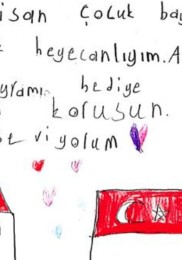 isan çocuk bay
heyecanlıyım. A
yramı hediye
korusun.
viyolum